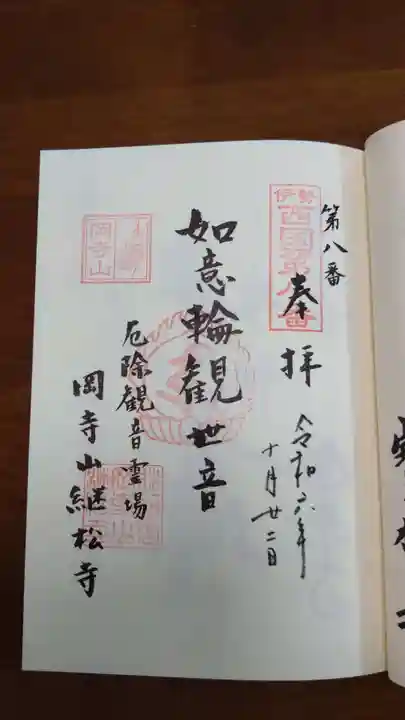 第八番
伊勢
西国第八番
奉拝
令和六年
十月廿二日
如意輪觀世音
厄除観音霊場
岡寺山
岡寺山継松寺